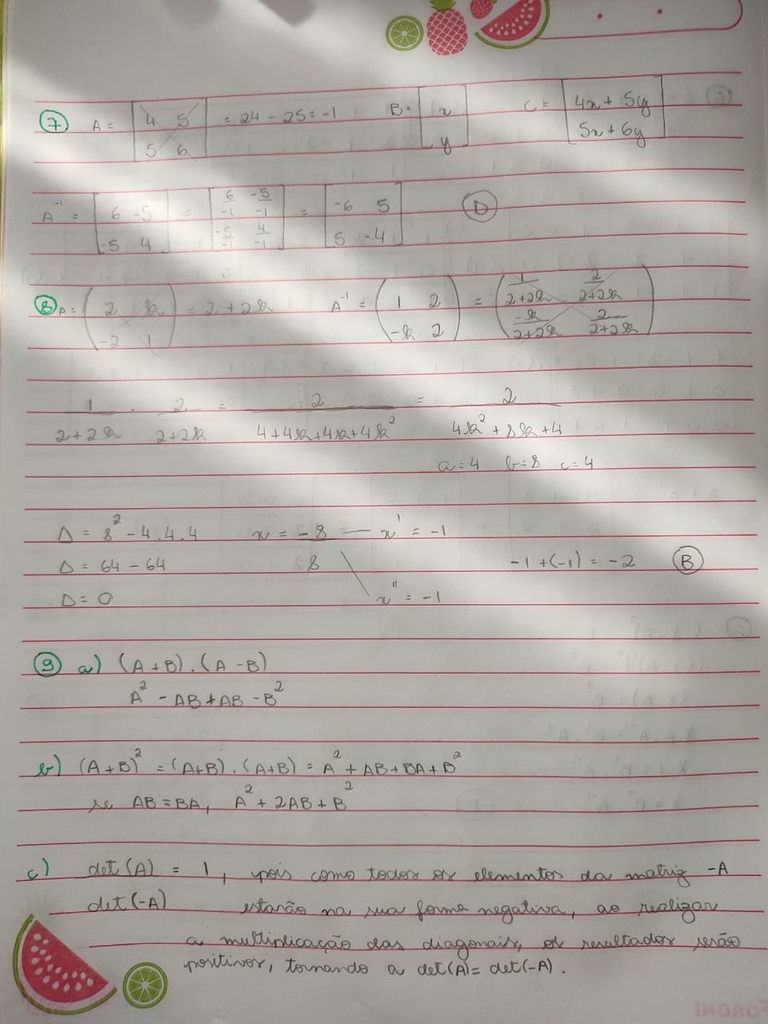 7 A = [4 5 = 24 - 25 = -1 B = [x C = [4x + 5y
5 6] y] 5x + 6y]
A⁻¹ = [6 -5 = [6/-1 -5/-1 = [-6 5 D
-5 4] -5/-1 4/-1] 5 -4]
8 A = (2 k = 2 + 2k A⁻¹ = (1 2 = (1/2+2k 2/2+2k
-2 1) -k 2) -k/2+2k 2/2+2k)
1/2+2k . 2/2+2k = 2/4+4k+4k+4k² = 2/4k²+8k+4
a=4 b=8 c=4
Δ = 8² - 4.4.4 x = -8/8 x' = -1
Δ = 64 - 64 -1 + (-1) = -2 B
Δ = 0 x" = -1
9 a) (A+B).(A-B)
A² - AB + AB - B²
b) (A+B)² = (A+B).(A+B) = A² + AB + BA + B²
se AB = BA, A² + 2AB + B²
c) det(A) = 1, pois como todos os elementos da matriz -A
det(-A) estarão na sua forma negativa, ao realizar
a multiplicação das diagonais, os resultados serão
positivos, tornando a det(A) = det(-A).